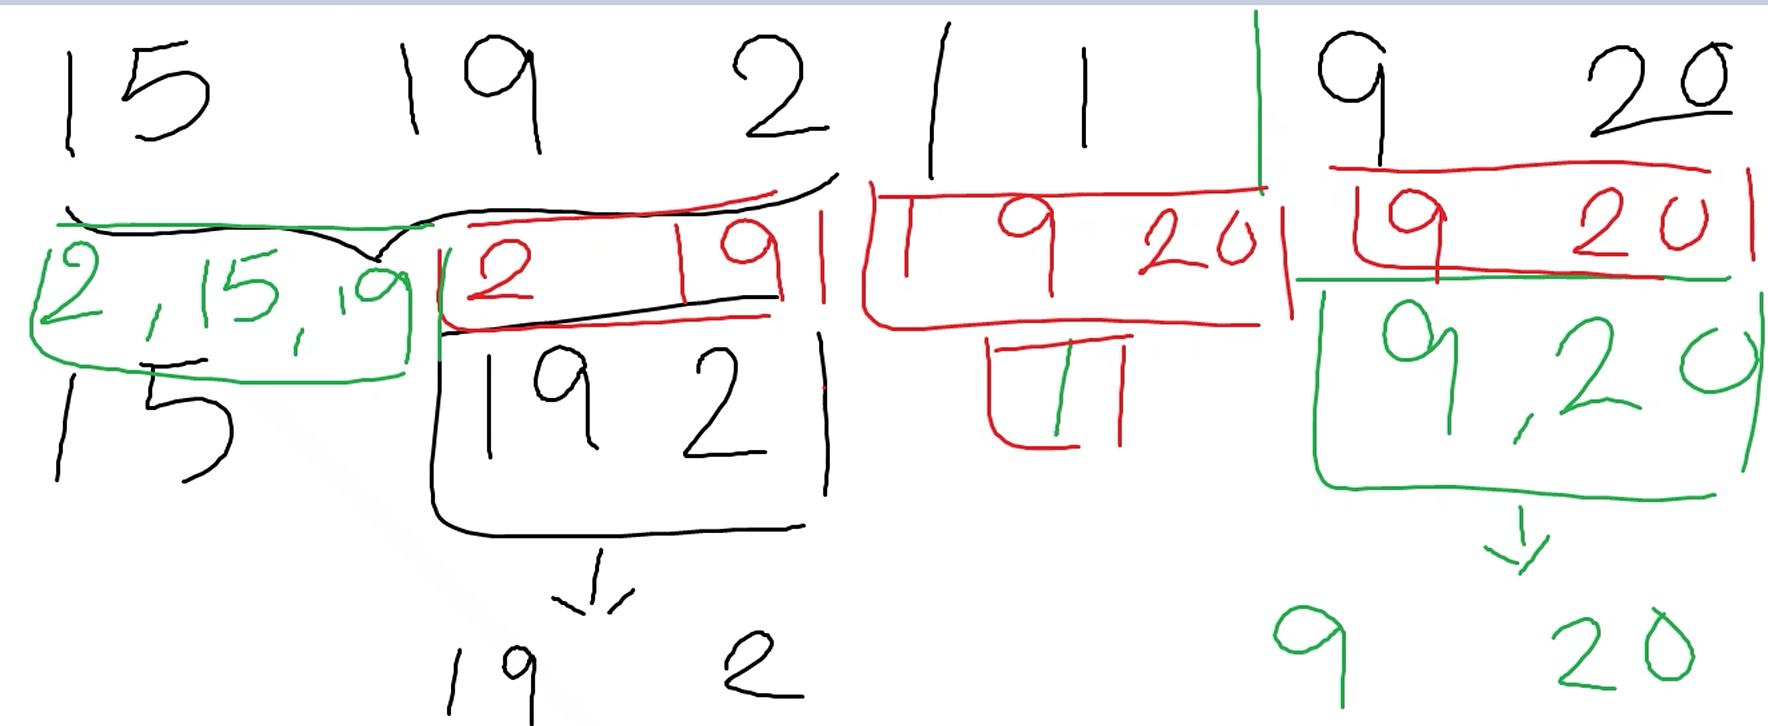 15 19 2 1 9 20
2, 15, 19 2 19 1 9 20 9 20
15 19 2 1 9, 20
19 2 9 20